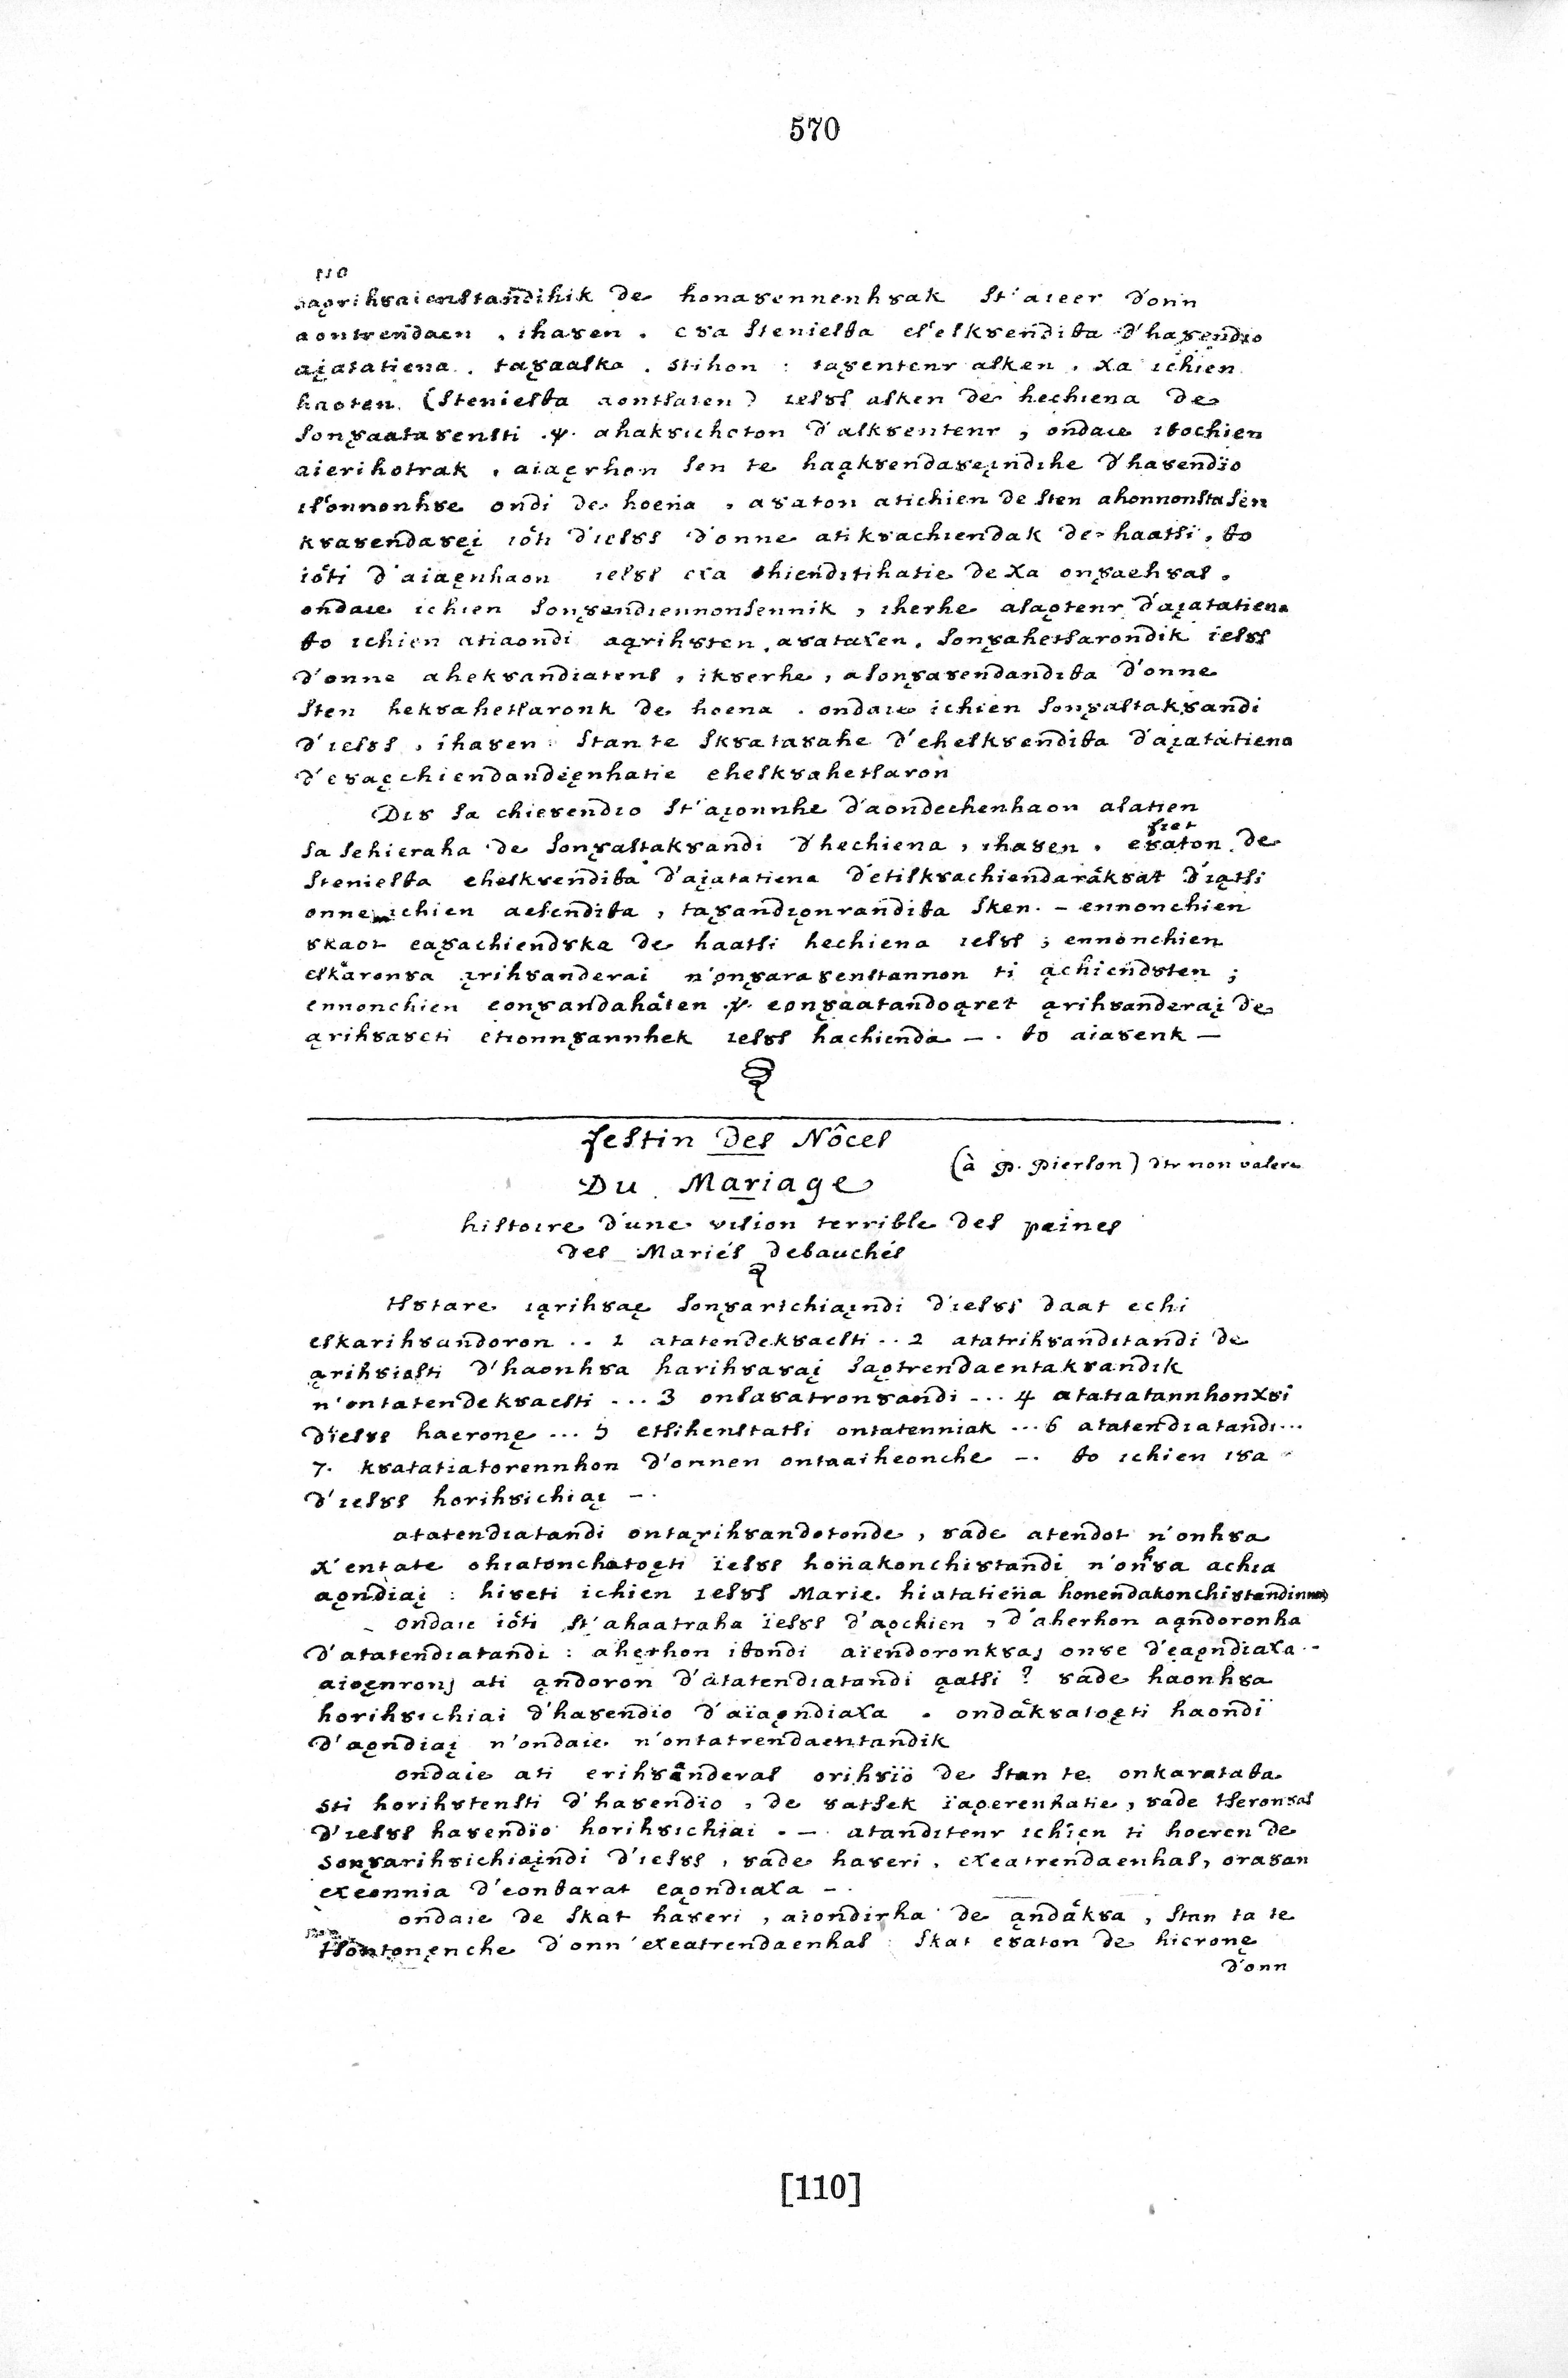 570
110
aǫrihȣaienstandihik de honaȣennenhȣak st'aieer d'onn
aontrendaen . ihaȣen . eȣa steniesθa es'eskȣendiθa d'haȣendio
aįatatiena . taɣaaska . stihon : taɣentenr asken . χa ichien
haoten (steniesθa aontsaten) iesȣs asken de hechiena de
sonɣaataȣensti .ψ. ahakȣicheton d'askȣentenr , ondaie iθochien
aierihotrak , aiaęrhon sen te haąkȣendaȣeįndihe d'haȣendïo
is'onnonhȣe ondi de hoena , aȣaton atichien de sten ahonnonstasen
kȣaȣendaȣeį ioti d'iesȣs d'onne atikȣachiendak de haatsi , θo
ioti d'aiaęnhaon iesȣs eχa chienditihatie de χa onɣaehȣas .
ondaie ichien sonɣendiennonsennik , iherhe asaǫtenr d'aįatatiena
θo ichien atiaondi aąrihȣten , aȣataχen . sonɣahetsarondik iesȣs
d'onne ahekȣandiatens , ikȣerhe , asonɣaȣendandiθa d'onne
sten hekȣahetsaronk de hoena . ondaie ichien sonɣastakȣandi
d'iesȣs , ihaȣen : stan te skȣataȣahe d'eheskȣendiθa d'aįatatiena
d'eȣaęchiendandeęnhatie eheskȣahetsaron
Diȣ sa chieȣendio st'aįonnhe d'aondechenhaon asatien
fiet
sa sehieraha de sonɣastakȣandi d'hechiena , ihaȣen . eȣaton de
steniesθa eheskȣendiθa d'aįatatiena d'etiskȣachiendaräkȣat d'iątsi
onne ichien aesendiθa , taɣandiǫnrandiθa sken . – ennonchien
ȣkaot eaɣachiendȣka de haatsi hechiena iesȣs ; ennonchien
eskaronȣa ąrihȣanderai n'onɣaraȣenstannon ti ąchiendȣten ;
ennonchien eonɣandahäten .ψ. eonɣaatandoąret ąrihȣanderaį de
ąrihȣaȣeti etionnɣannhek iesȣs hachienda – . θo aiaȣenk –
festin des Nôces
(à P. Pierson) dtr non valere
Du Mariage
histoire d'une vision terrible des peines
des Mariés debauchés
tsȣtare iąrihȣaę sonɣarichiaįndi d'iesȣs daat echi
eskarihȣandoron .. 1 atatendekȣaesti .. 2 atatrihȣanditandi de
ąrihȣiosti d'haonhȣa harihȣaȣaį saǫtrendaentakȣandik
n'ontatendekȣaesti ... 3 onsaȣatronȣandi ... 4 atatiatannhonχȣi
d'iesȣs haeronę ... 5 etsihenstatsi ontatenniak ... 6 atatendiatandi ...
7. kȣatatiatorennhon d'onnen ontaaiheonche – . θo ichien iȣa
d'iesȣs horihȣichiaį – .
atatendiatandi ontaąrihȣandotonde , ȣade atendot n'onhȣa
χ'entate ohiatonchatoęti ïesȣs honakonchiȣtandi n'onhȣa achia
aǫndiaį : hiȣeti ichien iesȣs Marie hiatatiena honendakonchiȣtandinnen
ondaie ioti st'ahaatraha ïesȣs d'aǫchien , d'aherhon aąndoronha
d'atatendiatandi : aherhon iθondi aïendoronkȣaj onȣe d'eaǫndiaχa ..
aioęnronj ati ąndoron d'atatendiatandi ąatsi ? ȣade haonhȣa
horihȣichiai d'haȣendio d'aïaǫndiaχa . ondäkȣatoęti haondï
d'aǫndiaį n'ondaie n'ontatrendaentandik
ondaie ati erihȣänderas orihȣïo de stan te onkarataθa
sti horihȣtensti d'haȣendïo , de ȣatsek ïaǫerenhatie , ȣade tseronȣas
d'iesȣs haȣendïo horihȣichiai . – atanditenr ichien ti hoeren de
sonɣarihȣichiaįndi d'iesȣs , ȣade haȣeri , eχeatrendaenhas , oraȣan
eχeonnia d'eonθarat eaǫndiaχa – .
ondaie de skat haȣeri , aiondirha de ąndäkȣa , stan ta te
tsontonęnche d'onn'eχeatrendaenhas : skat eȣaton de hieronę
d'onn
[110]